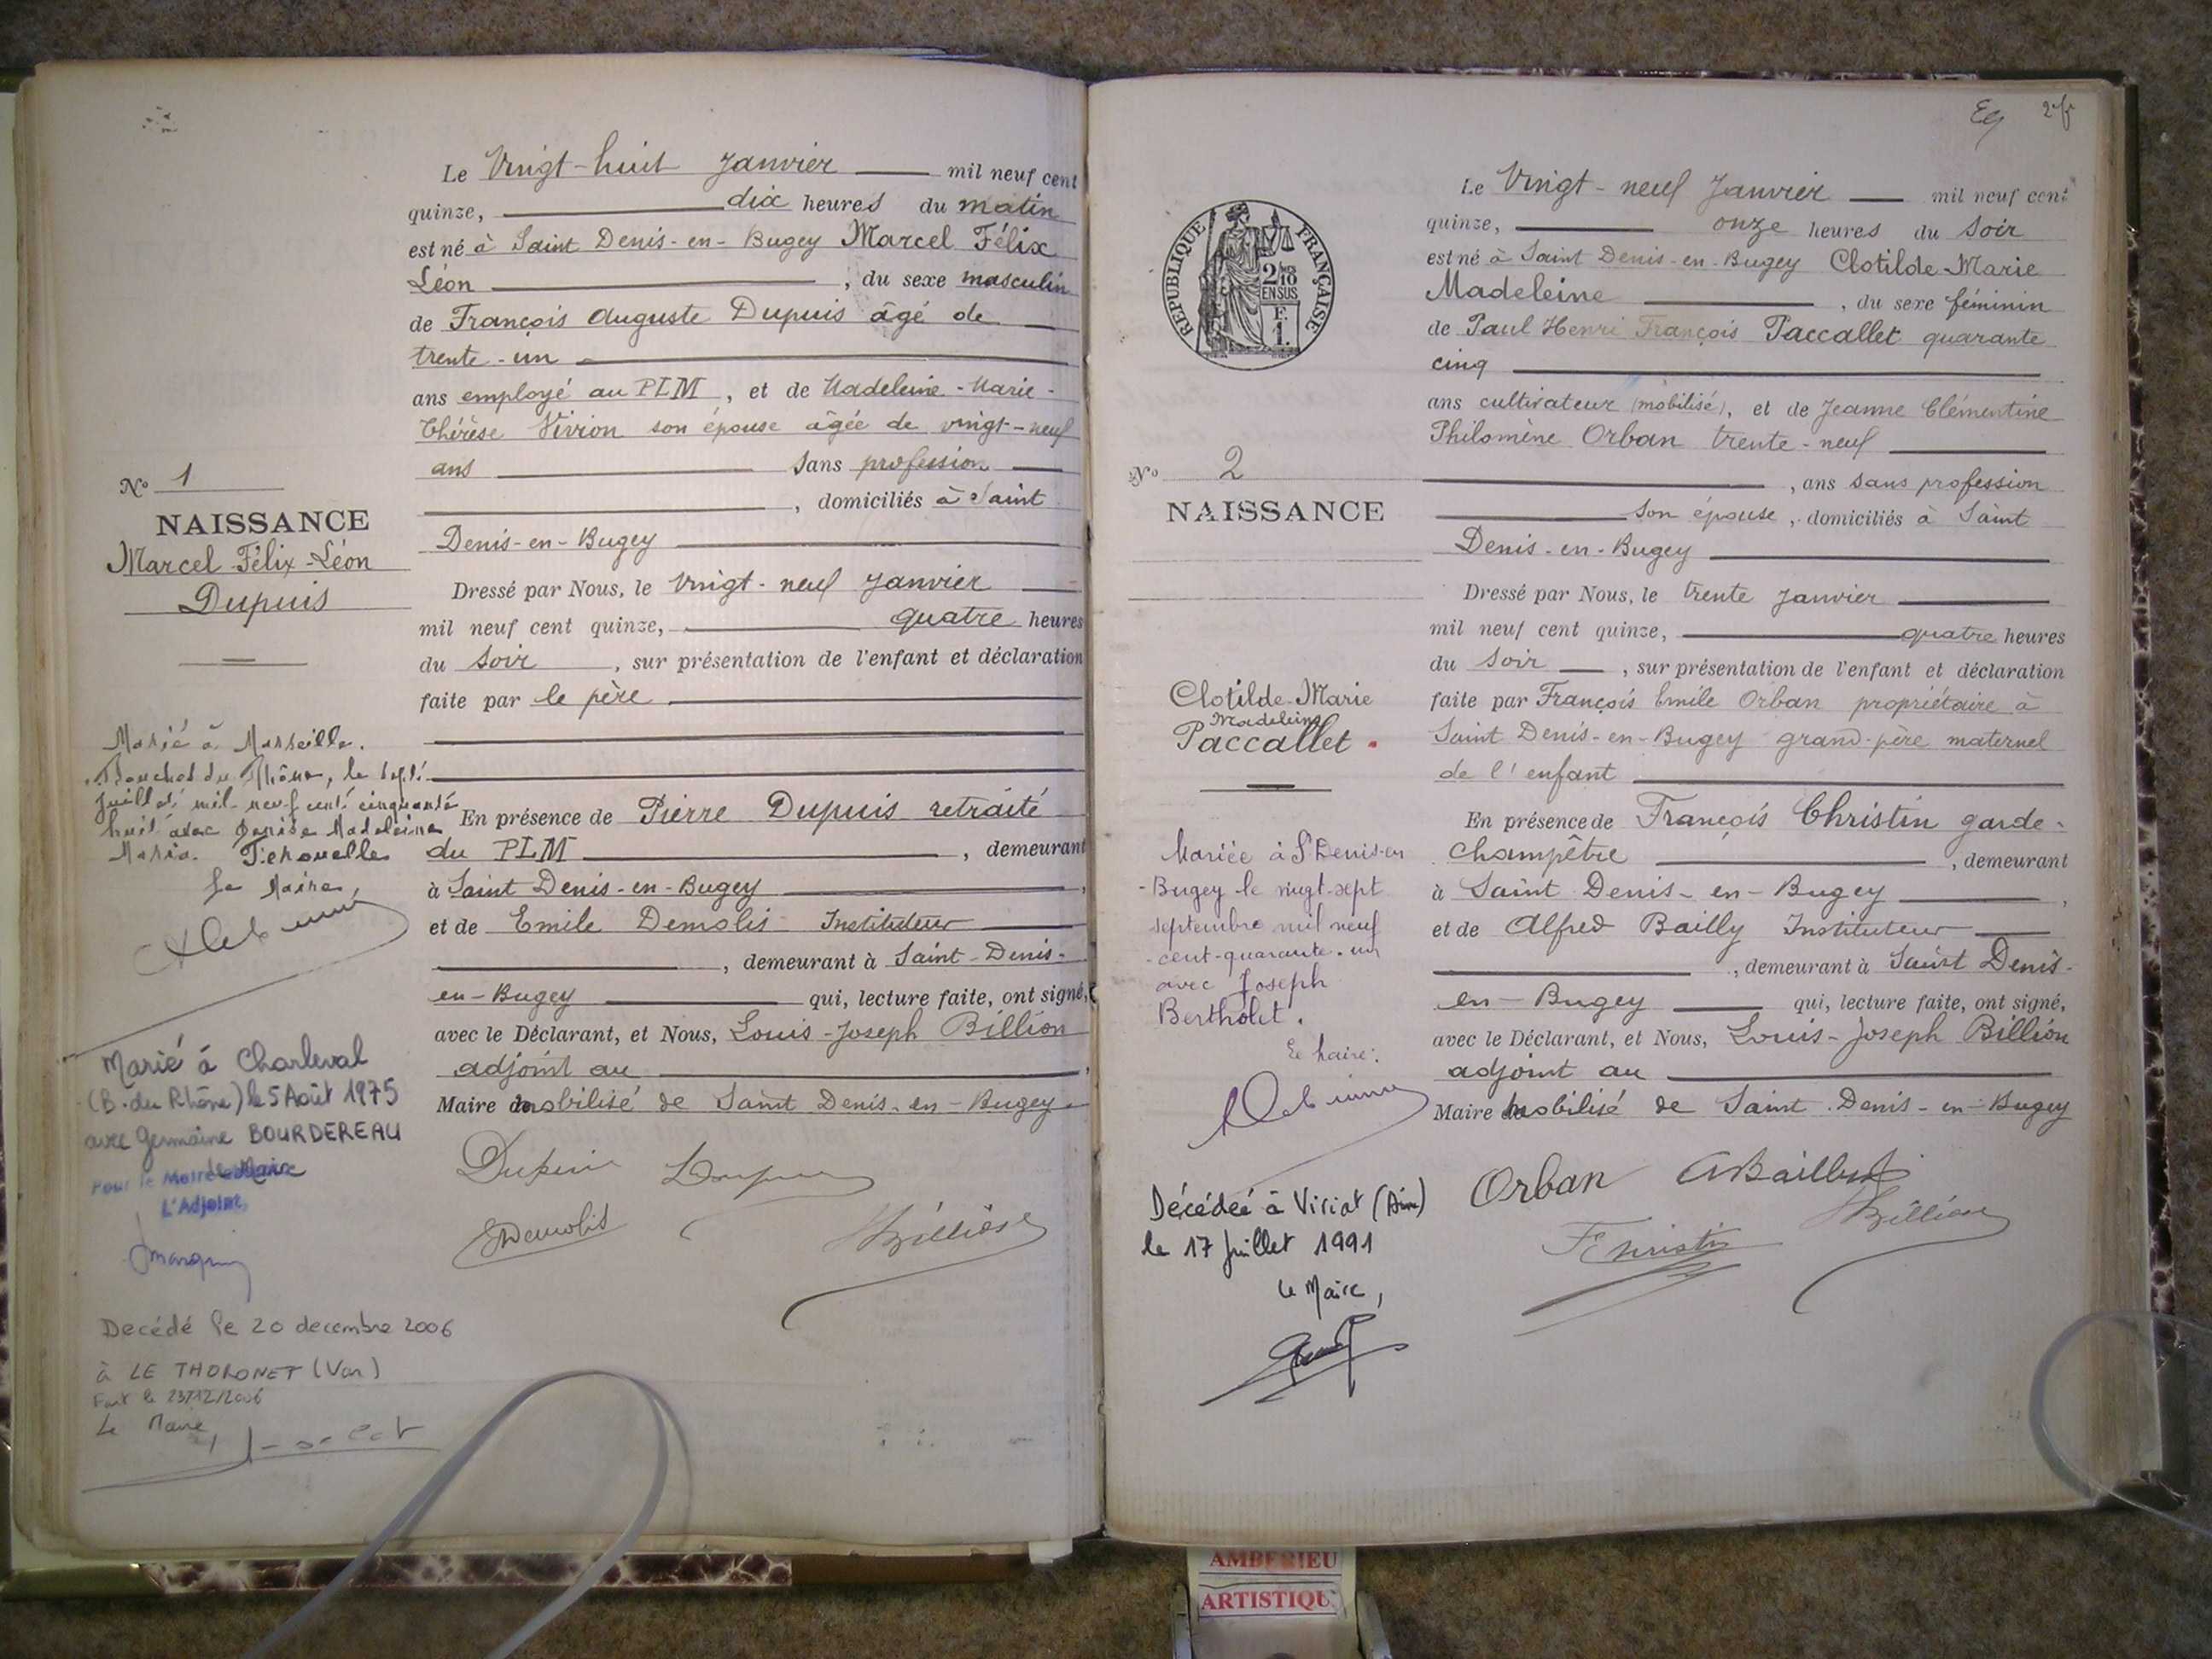 Le Vingt-huit Janvier mil neuf cent
quinze, dix heures du matin
est né à Saint Denis-en-Bugey Marcel Félix
Léon , du sexe masculin
de François Auguste Dupuis âgé de
trente-un
ans employé au PLM , et de Madeleine-Marie-
Thérèse Vivion son épouse âgée de vingt-neuf
ans sans profession
, domiciliés à Saint
Denis-en-Bugey
Dressé par Nous, le Vingt-neuf Janvier
mil neuf cent quinze, quatre heures
du soir , sur présentation de l'enfant et déclaration
faite par le père
En présence de Pierre Dupuis retraité
du PLM , demeurant
à Saint Denis-en-Bugey ,
et de Emile Demolis Instituteur
, demeurant à Saint-Denis-
en-Bugey qui, lecture faite, ont signé,
avec le Déclarant, et Nous, Louis-Joseph Billion
adjoint au ,
Maire mobilisé de Saint Denis-en-Bugey
Dupuis
EDemolis Billion
No 1
NAISSANCE
Marcel-Félix-Léon
Dupuis
Marié à Marseille.
Bouches du Rhône, le sept
juillet mil-neuf cent cinquante
huit avec Denise Madeleine
Maria.
Le Maire,
Marié à Charleval
(B. du Rhône) le 5 Août 1975
avec Germaine BOURDEREAU
Pour le Maire
L'Adjoint,
Decédé le 20 decembre 2006
à LE THORONET (Var)
Fait le 23/12/2006
Le Maire,
2
RÉPUBLIQUE FRANÇAISE
2/10
EN SUS
F.
1.
Le Vingt-neuf Janvier mil neuf cent
quinze, onze heures du soir
est né à Saint Denis-en-Bugey Clotilde-Marie
Madeleine , du sexe féminin
de Paul Henri François Paccallet quarante
cinq
ans cultivateur (mobilisé), et de Jeanne Clémentine
Philomène Orban trente-neuf
, ans sans profession
son épouse , domiciliés à Saint
Denis-en-Bugey
Dressé par Nous, le trente Janvier
mil neuf cent quinze, quatre heures
du soir , sur présentation de l'enfant et déclaration
faite par François Emile Orban propriétaire à
Saint Denis-en-Bugey grand-père maternel
de l'enfant
En présence de François Christin garde-
champêtre , demeurant
à Saint Denis-en-Bugey ,
et de Alfred Bailly Instituteur
, demeurant à Saint Denis-
en-Bugey qui, lecture faite, ont signé,
avec le Déclarant, et Nous, Louis-Joseph Billion
adjoint au
Maire mobilisé de Saint Denis-en-Bugey
Orban ABailly
Billion
No 2
NAISSANCE
Clotilde-Marie
Madeleine
Paccallet
Mariée à St Denis-en
-Bugey le vingt-sept
septembre mil neuf
-cent-quarante-un
avec Joseph
Bertholet.
Le Maire:
Décédée à Viriat (Ain)
le 17 Juillet 1991
Le Maire,
AMBERIEU
ARTISTIQU